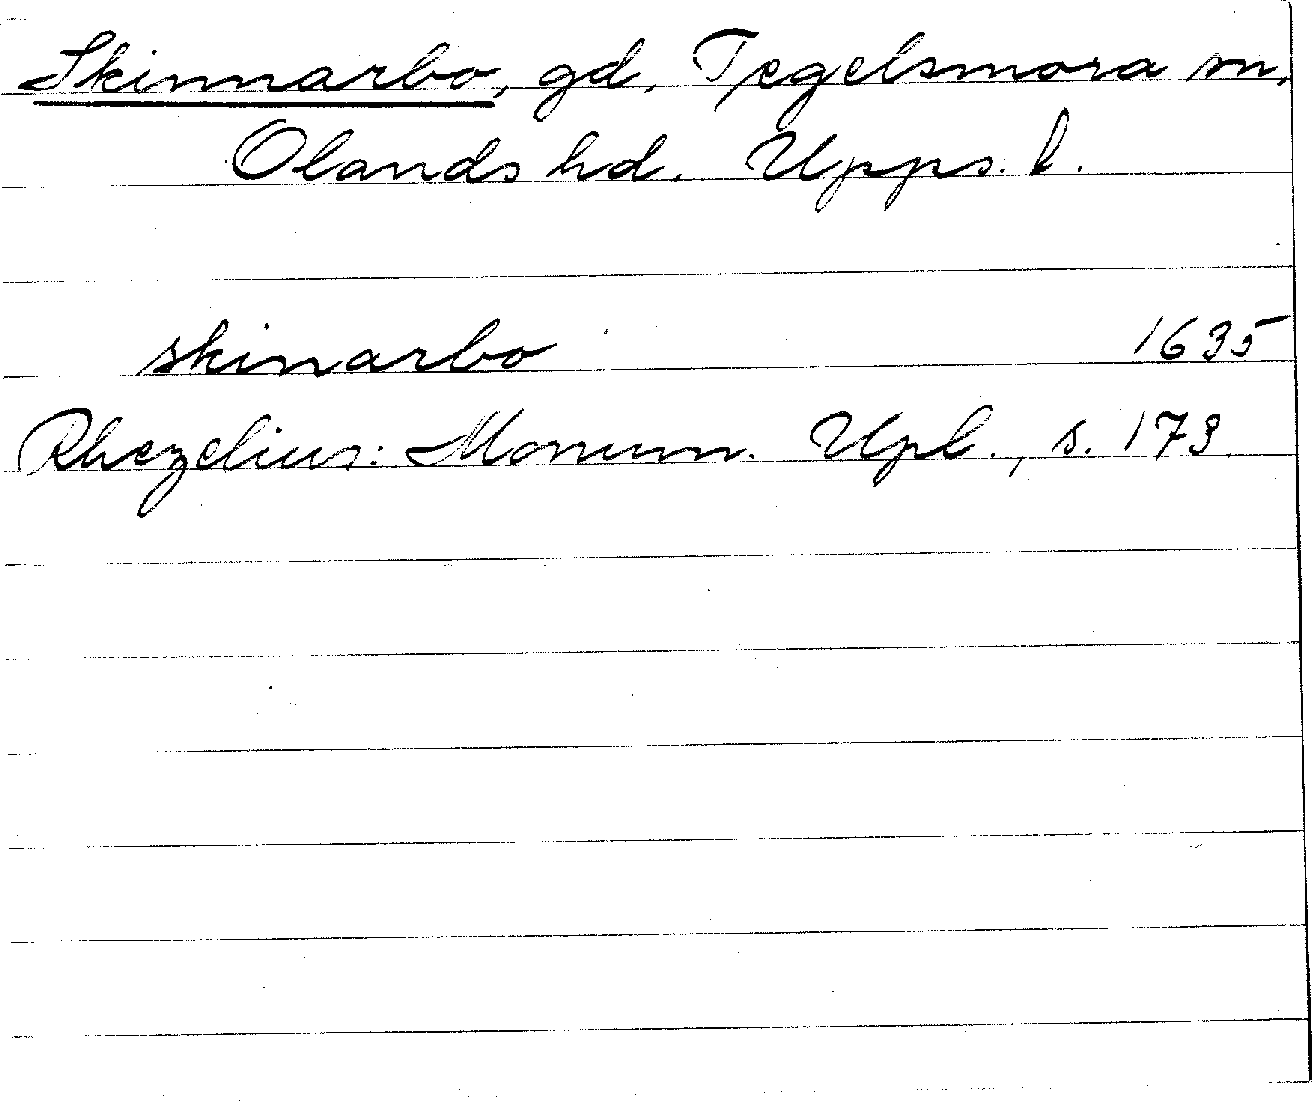 Skinnarbo, gd, Tegelsmora sn,
Olands hd. Upps. l.
skinarbo 1635
Rhezelius: Monum. Upl., s. 173